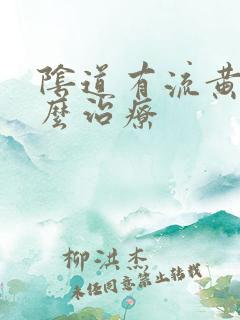 陰道有流黄
麼治療
柳洪杰
未经同意禁止转载